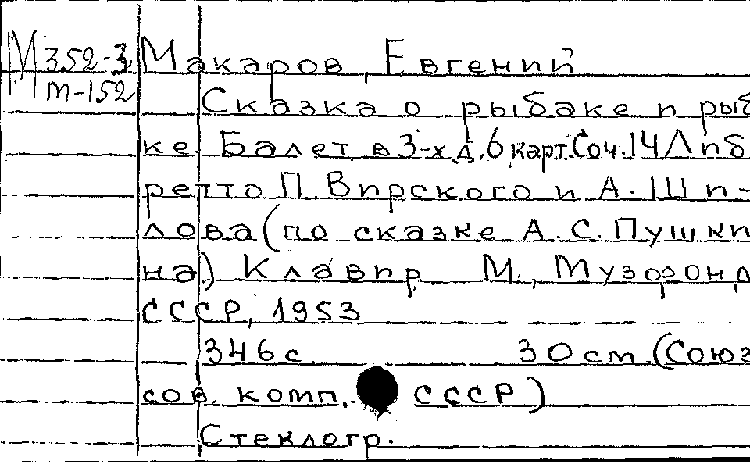 М 352-3 Макаров, Евгений
М т-152
Сказка о рыбаке и рыб
ке. Балет в 3-х д. 6 карт. Соч. 14 Либ
ретто П. Вирского и А. Ши-
лова (по сказке А. С. Пушки
на.) Клавир М., Музфонд
СССР, 1953
346 с 30 см (Союз
сов. комп. СССР)
Стеклогр.